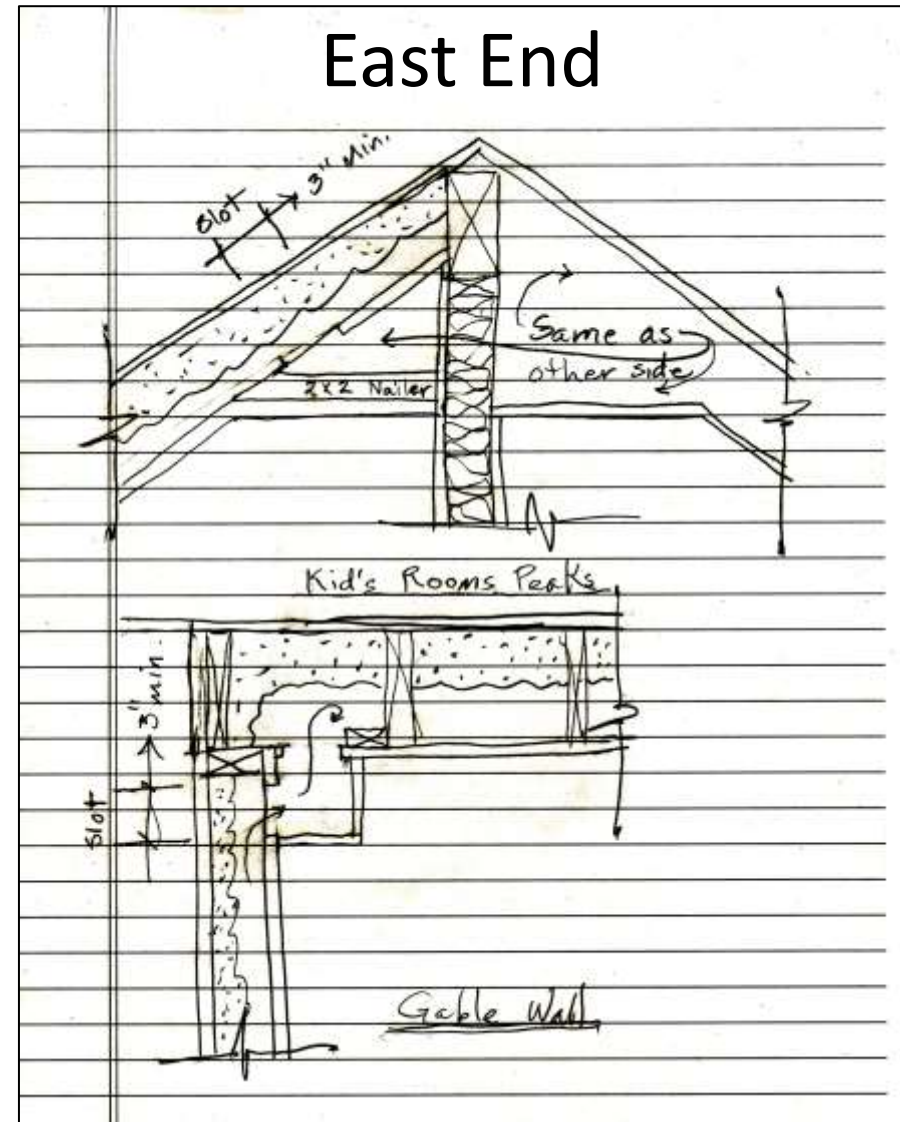 East End
Slot
3" Min.
Same as
other side
2x2 Nailer
Kid's Rooms Peaks
3" min.
Slot
Gable Wall